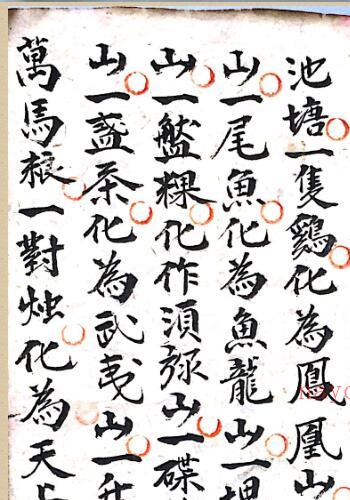 池塘一隻鷄化為鳳凰山
山一尾魚化為魚龍山一
山一盤粿化作須弥山一碟
山一盞茶化為武夷山一
萬馬根一對烛化為天上